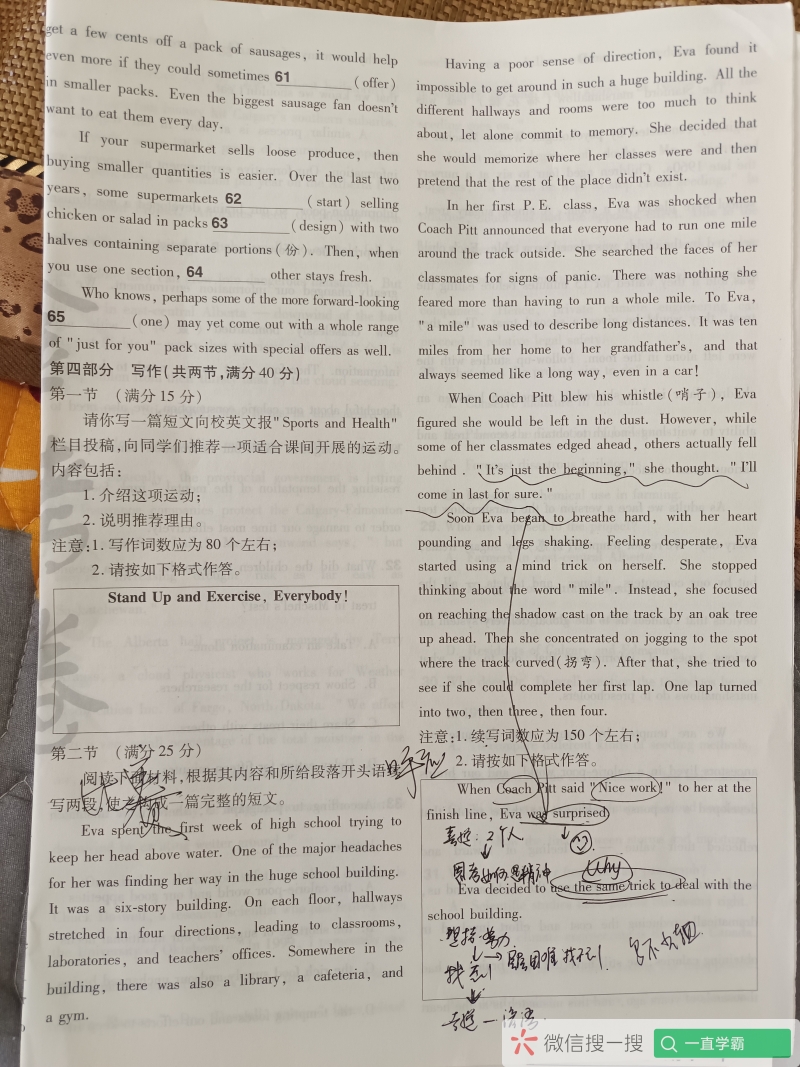 get a few cents off a pack of sausages, it would help
even more if they could sometimes 61 (offer)
in smaller packs. Even the biggest sausage fan doesn't
want to eat them every day.
If your supermarket sells loose produce, then
buying smaller quantities is easier. Over the last two
years, some supermarkets 62 (start) selling
chicken or salad in packs 63 (design) with two
halves containing separate portions(份). Then, when
you use one section, 64 other stays fresh.
Who knows, perhaps some of the more forward-looking
65 (one) may yet come out with a whole range
of "just for you" pack sizes with special offers as well.
第四部分 写作(共两节,满分40分)
第一节 (满分15分)
请你写一篇短文向校英文报"Sports and Health"
栏目投稿,向同学们推荐一项适合课间开展的运动。
内容包括:
1. 介绍这项运动;
2. 说明推荐理由。
注意:1. 写作词数应为80个左右;
2. 请按如下格式作答。
Stand Up and Exercise, Everybody!
第二节 (满分25分)
阅读下面材料,根据其内容和所给段落开头语续
写两段,使之构成一篇完整的短文。
Eva spent the first week of high school trying to
keep her head above water. One of the major headaches
for her was finding her way in the huge school building.
It was a six-story building. On each floor, hallways
stretched in four directions, leading to classrooms,
laboratories, and teachers' offices. Somewhere in the
building, there was also a library, a cafeteria, and
a gym.
Having a poor sense of direction, Eva found it
impossible to get around in such a huge building. All the
different hallways and rooms were too much to think
about, let alone commit to memory. She decided that
she would memorize where her classes were and then
pretend that the rest of the place didn't exist.
In her first P.E. class, Eva was shocked when
Coach Pitt announced that everyone had to run one mile
around the track outside. She searched the faces of her
classmates for signs of panic. There was nothing she
feared more than having to run a whole mile. To Eva,
"a mile" was used to describe long distances. It was ten
miles from her home to her grandfather's, and that
always seemed like a long way, even in a car!
When Coach Pitt blew his whistle(哨子), Eva
figured she would be left in the dust. However, while
some of her classmates edged ahead, others actually fell
behind. "It's just the beginning," she thought. "I'll
come in last for sure."
Soon Eva began to breathe hard, with her heart
pounding and legs shaking. Feeling desperate, Eva
started using a mind trick on herself. She stopped
thinking about the word "mile". Instead, she focused
on reaching the shadow cast on the track by an oak tree
up ahead. Then she concentrated on jogging to the spot
where the track curved(拐弯). After that, she tried to
see if she could complete her first lap. One lap turned
into two, then three, then four.
注意:1. 续写词数应为150个左右;
2. 请按如下格式作答。
When Coach Pitt said "Nice work!" to her at the
finish line, Eva was surprised
2个人
why
Eva decided to use the same trick to deal with the
school building.
微信搜一搜 一直学霸